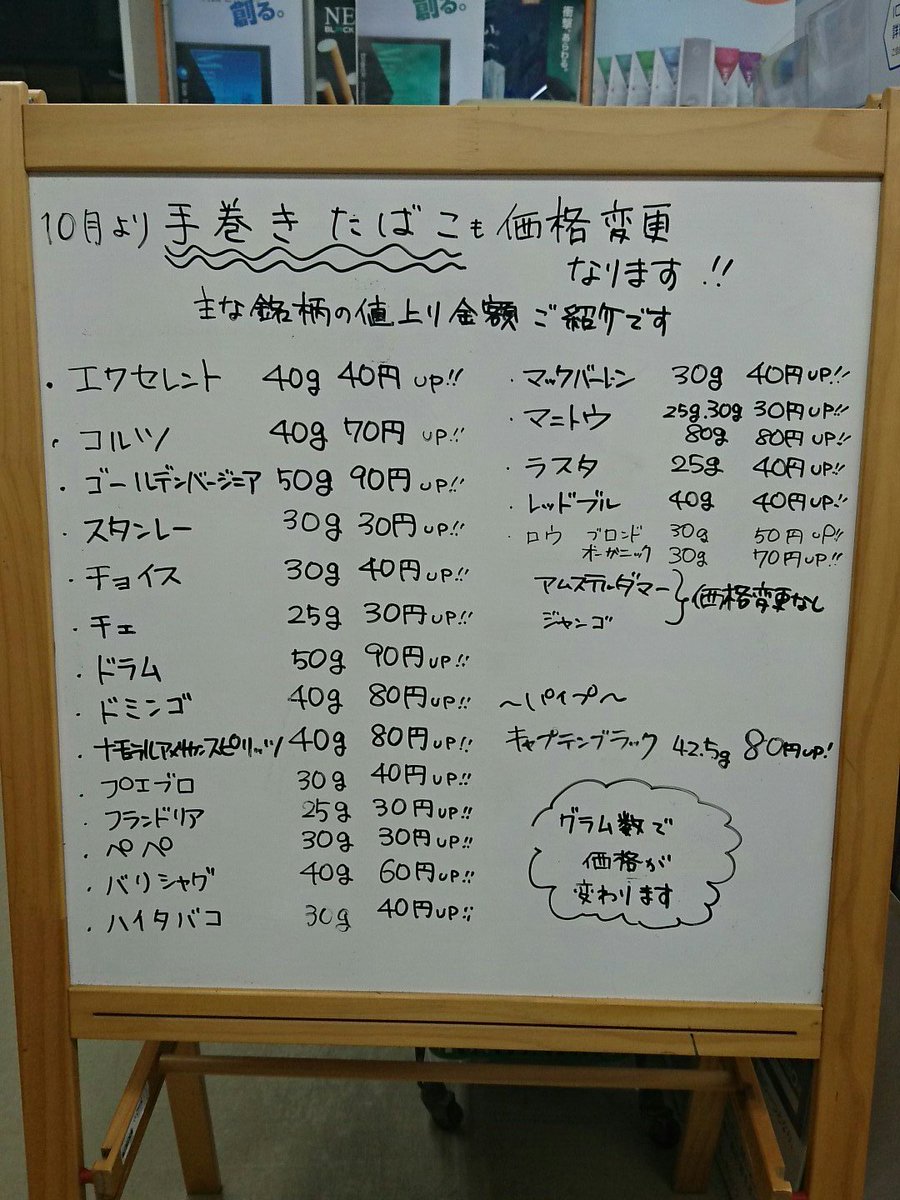 創る。
NE
創る。
衝撃、あらわる。
10月より 手巻き たばこも 価格変更
なります !!
主な銘柄の値上り金額 ご紹介です
・エクセレント 40g 40円 UP!!
・コルツ 40g 70円 UP!!
・ゴールデンバージニア 50g 90円 UP!!
・スタンレー 30g 30円 UP!!
・チョイス 30g 40円 UP!!
・チェ 25g 30円 UP!!
・ドラム 50g 90円 UP!!
・ドミンゴ 40g 80円 UP!!
・ナチュラルアメリカンスピリッツ 40g 80円 UP!!
・プエブロ 30g 40円 UP!!
・フランドリア 25g 30円 UP!!
・ペペ 30g 30円 UP!!
・バリシャグ 40g 60円 UP!!
・ハイタバコ 30g 40円 UP!!
・マックバーレン 30g 40円 UP!!
・マニトウ 25g.30g 30円 UP!!
80g 80円 UP!!
・ラスタ 25g 40円 UP!!
・レッドブル 40g 40円 UP!!
・ロウ ブロンド 30g 50円 UP!!
オーガニック 30g 70円 UP!!
アムステルダマー
ジャンゴ
価格変更なし
〜パイプ〜
キャプテンブラック 42.5g 80円 UP!
グラム数で
価格が
変わります